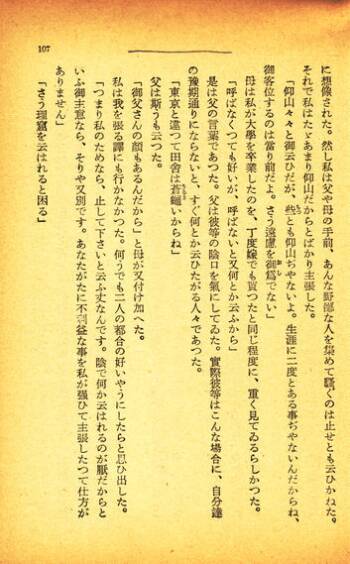 107
に想像された。然し私は父や母の手前、あんな野鄙な人を集めて騷ぐのは止せとも云ひかねた。
それで私はたゞあまり仰山だからとばかり主張した。
「仰山々々と御云ひだが、些とも仰山ぢやないよ。生涯に二度とある事ぢやないんだからね、
御客位するのは當り前だよ。さう遠慮を御爲でない」
母は私が大學を卒業したのを、丁度嫁でも貰つたと同じ程度に、重く見てゐるらしかつた。
「呼ばなくつても好いが、呼ばないと又何とか云ふから」
是は父の言葉であつた。父は彼等の陰口を氣にしてゐた。實際彼等はこんな場合に、自分達
の豫期通りにならないと、すぐ何とか云ひたがる人々であつた。
「東京と違つて田舍は蒼蠅いからね」
父は斯うも云つた。
「御父さんの顏もあるんだから」と母が又付け加へた。
私は我を張る譯にも行かなかつた。何うでも二人の都合の好いやうにしたらと思ひ出した。
「つまり私のためなら、止して下さいと云ふ丈なんです。陰で何か云はれるのが厭だからと
いふ御主意なら、そりや又別です。あなたがたに不利益な事を私が强ひて主張したつて仕方が
ありません」
「さう理窟を云はれると困る」